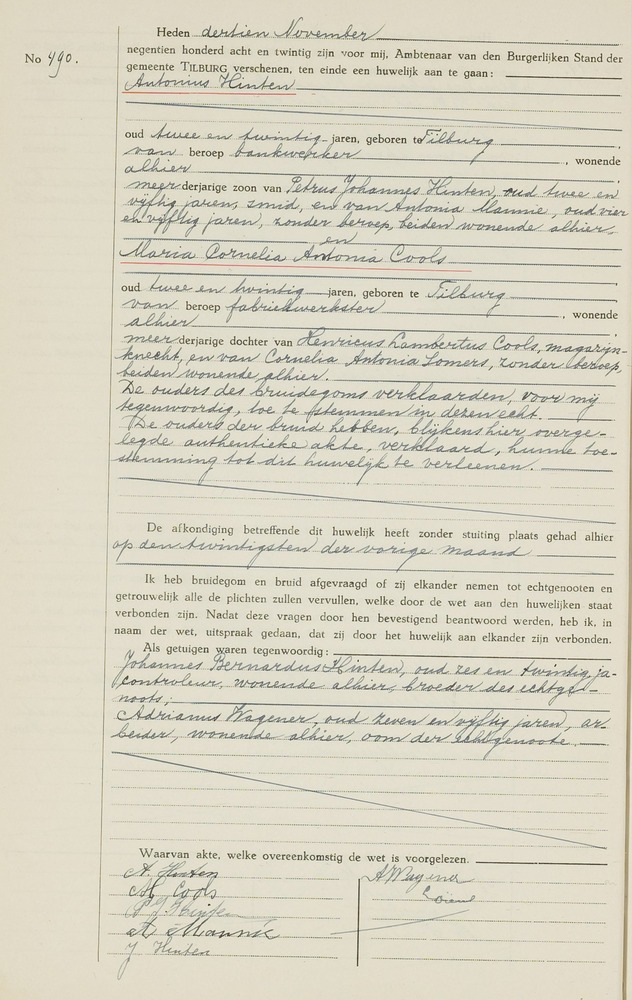 No 490.
Heden dertien November
negentien honderd acht en twintig zijn voor mij, Ambtenaar van den Burgerlijken Stand der
gemeente TILBURG verschenen, ten einde een huwelijk aan te gaan:
Antonius Hinten
oud twee en twintig jaren, geboren te Tilburg
van beroep bankwerker, wonende
alhier
meerderjarige zoon van Petrus Johannes Hinten, oud twee en
vijftig jaren, smid, en van Antonia Mannie, oud vier
en vijftig jaren, zonder beroep, beiden wonende alhier
en
Maria Cornelia Antonia Cools
oud twee en twintig jaren, geboren te Tilburg
van beroep fabriekwerkster, wonende
alhier
meerderjarige dochter van Henricus Lambertus Cools, magazijn-
knecht, en van Cornelia Antonia Somers, zonder beroep,
beiden wonende alhier.
De ouders des bruidegoms verklaarden, voor mij
tegenwoordig, toe te stemmen in dezen echt.
De ouders der bruid hebben, blijkens hier overge-
legde authentieke akte, verklaard, hunne toe-
stemming tot dit huwelijk te verleenen.
De afkondiging betreffende dit huwelijk heeft zonder stuiting plaats gehad alhier
op den twintigsten der vorige maand
Ik heb bruidegom en bruid afgevraagd of zij elkander nemen tot echtgenooten en
getrouwelijk alle de plichten zullen vervullen, welke door de wet aan den huwelijken staat
verbonden zijn. Nadat deze vragen door hen bevestigend beantwoord werden, heb ik, in
naam der wet, uitspraak gedaan, dat zij door het huwelijk aan elkander zijn verbonden.
Als getuigen waren tegenwoordig:
Johannes Bernardus Hinten, oud zes en twintig ja-
controleur, wonende alhier, broeder des echtge-
noots;
Adrianus Wagener, oud zeven en vijftig jaren, ar-
beider, wonende alhier, oom der echtgenoote.
Waarvan akte, welke overeenkomstig de wet is voorgelezen.
A. Hinten
M Cools
P J Hinten
A Mannie
J Hinten
A Wagener